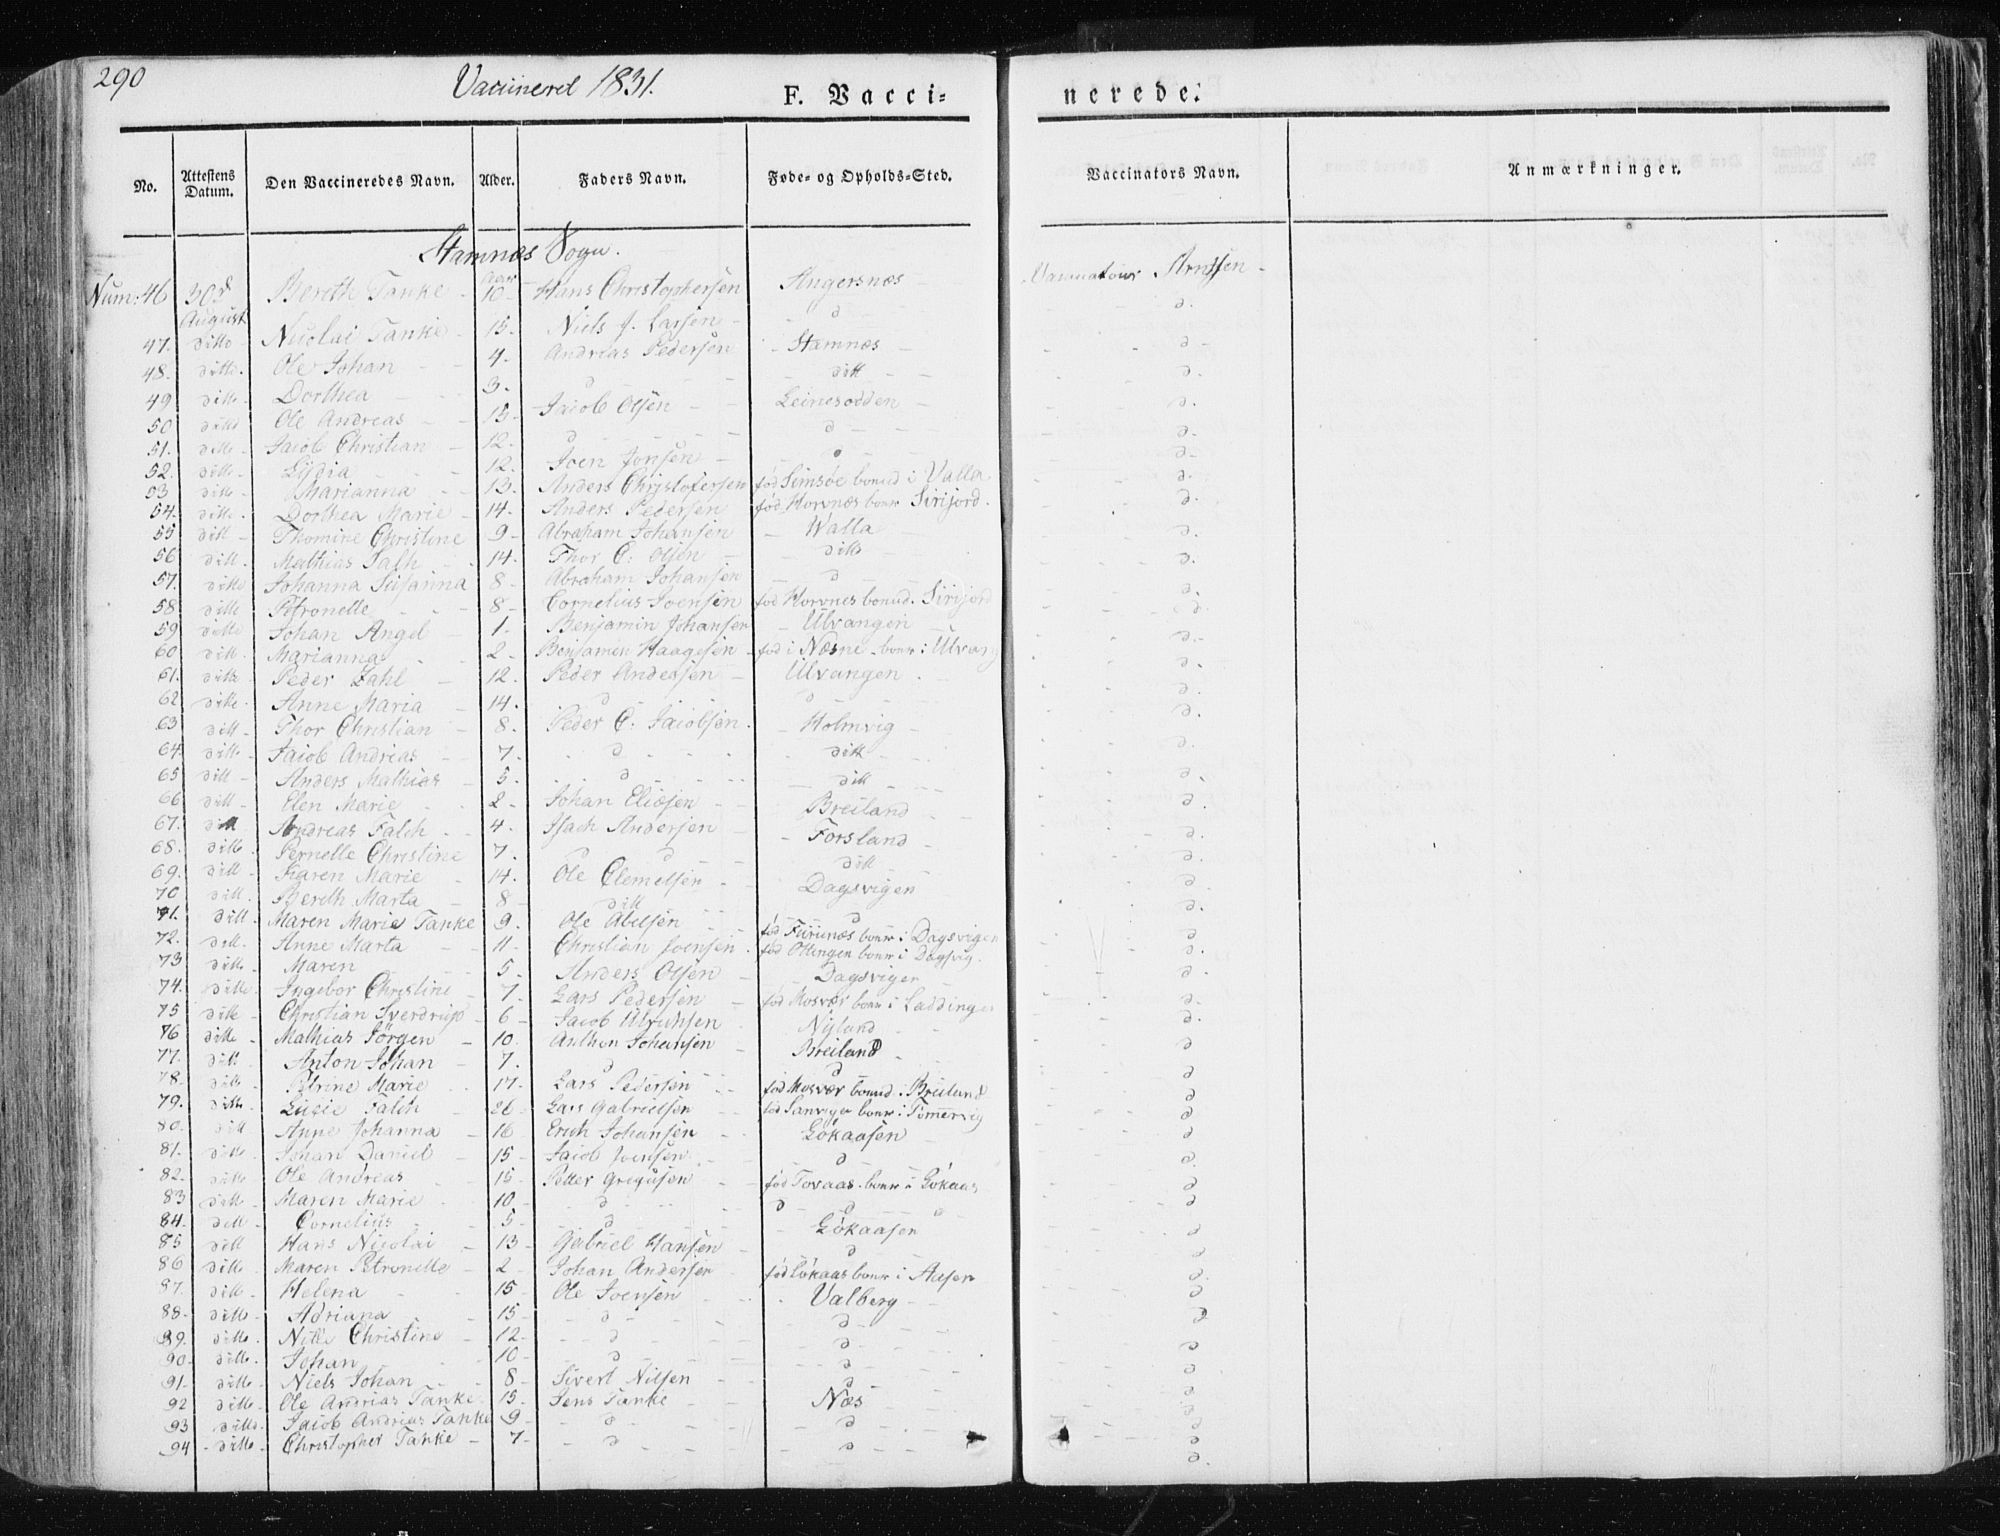 290
Vaccineret 1831.
F. Vacci-
nerede.
No. | Attestens Datum. | Den Vaccineredes Navn. | Alder. | Faders Navn. | Føde- og Opholds-Sted. | Vaccinators Navn. | Anmærkninger.
Stamnæs Sogn.
Num: 46 | 30d August | Bereth Tanke - | Aar 10 - | Hans Christophersen | Angersnæs - | Vaccinateur Arntsen -
47. | ditto | Nicolai Tanke - | 15. | Niels J. Larsen - | d | d.
48. | ditto. | Ole Johan - - | 4. | Andreas Pedersen | - Stamnæs - | d -
49 | ditto | Dorthea - - | 3. | d - - | ditt | d.
50 | ditto | Ole Andreas - - | 13 - | Jacob Olsen - - | Leinesodden - | d.
51. | ditto - | Jacob Christian - | 12 - | d - - | d - | d.
52. | ditto - | Lydia - - | 12. | Joen Jonsen - | d | d -
53 | ditto - | Marianna - - | 13. | Anders Christofersen | fød Simsøe boend i Valla | d.
54. | ditto - | Dorthea Marie - | 14. | Anders Pedersen | fød Horvnæs boer Sirijord. | d.
55 | ditt - | Thomine Christine | 9 - | Abraham Johansen | - Walla - | d.
56 | ditt. | Mathias Falch - | 14. | Thor C: Olsen - | ditto | d.
57. | ditto | Johanna Susanna | 8 - | Abraham Johansen | d | d.
58 | ditto | Petronelle - - | 8 - | Cornelius Joensen | fød Horvnes boend. Sirijord | d.
59 | ditto | Johan Angel - | 1. | Benjamin Johansen | - Ulvangen - | d.
60 | ditt. | Marianna - - | 2 - | Benjamen Haagesen - | fød i Næsne - boer i Ulvang | d.
61. | ditto | Peder Zahl - | 12. | Peder Andersen - | Ulvangen - | d.
62 | ditto. | Anne Maria - | 14. | d | d | d.
63 | ditt - | Thor Christian - | 8. | Peder C: Jacobsen. | - Holmvig - | d.
64. | ditto - | Jacob Andreas - | 7 - | d | ditt | d.
65 | ditt - | Anders Mathias - | 5. | d | ditt | d.
66 | ditt - | Elen Marie - - | 2 - | Johan Eliesen - - | Breiland - | d.
67. | ditt | Andreas Falch - - | 4. | Isach Andersen - | - Forsland - | d.
68. | ditto. | Pernelle Christine | 7. | d | ditt | d.
69. | ditt | Karen Marie - | 14. | Ole Clemetsen - - | Dagsvigen | d.
70 | ditt. | Bereth Marta - | 8 - | ditt | d | d.
71. | ditt. | Maren Marie Tanke | 9. | Ole Abelsen - | fød Furunæs boer i Dagsvigen | d
72. | ditt. | Anne Marta - - | 11. | Christian Joensen - | fød Ottingen boer i Dagsvig. | d.
73 | ditto | Maren - - | 5 - | Anders Olsen - | Dagsvigen | d
74. | ditto. | Ingebor Christine - | 7. | Lars Pedersen - | fød Mosvær boer i Laddingen | d.
75 | ditto - | Christian Sverdrup - | 6 - | Jacob Ulrichsen | Nyland - | d.
76 | ditto. | Mathias Jörgen - | 10. | Anthon Johansen | Breiland - | d
77. | ditt. | Anton Johan - | 7. | d | d | d
78. | ditto | Petrine Marie - - | 17. | Lars Pedersen - - | fød Mosvær boend. i Breiland | d
79. | ditto | Lucie Falch - | 26 - | Lars Gabrielsen - | fød Sanvigen boer i Tømervig | d
80. | ditt | Anne Johanna - - | 16 - | Erich Johansen - | Gökaasen - | d
81. | ditto - | Johan Daniel - | 15 - | Jacob Joensen - | d | d.
82. | ditto | Ole Andreas - | 15 - | Petter Gregusen - - | fød Tovaas. boer i Gökaas | d
83 | ditt - | Maren Marie - | 10 - | d | d | d
84. | ditt - | Cornelius - - | 5 - | d | Gökaasen | d
85 | ditt | Hans Nicolai - | 13 - | Gabriel Hansen - | d | d
86 | ditto - | Maren Petronelle - | 2 - | Johan Andersen - | fød Gökaas boer i Aasen | d
87. | ditt - | Helena - | 15 - | Ole Joensen - - | Valberg - | d
88. | ditto - | Adriana - | 15 - | d | d | d
89. | ditto. | Nille Christine - | 12 - | d | d | d
90 - | ditto. | Johan - | 10 - | d | d | d
91 - | ditto - | Niels Johan - | 8 - | Sivert Nilsen - - | d | d
92 | ditto - | Ole Andrias Tanke. | 15. | Jens Tanke - | Næs - | d
93 | ditto. | Jacob Andreas Tanke | 9 - | d | d | d
94 | - ditto - | Christopher Tanke - | 7 - | d | d | d.